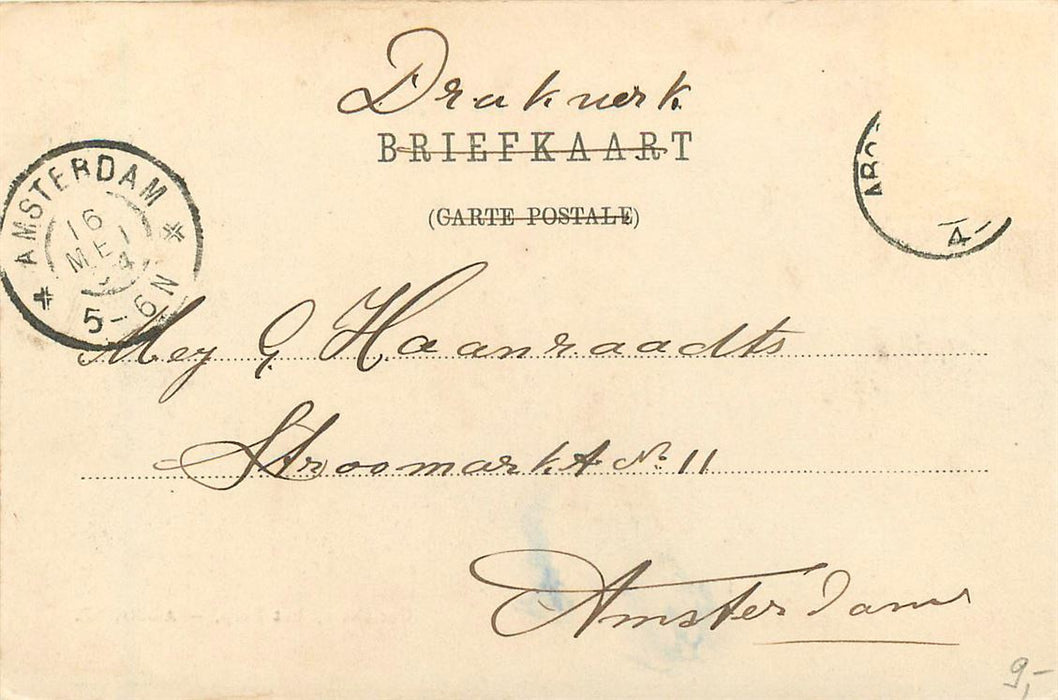 Drukwerk
BRIEFKAART
(CARTE POSTALE)
AMSTERDAM
16
MEI
5-6N
Mej G Haanraadts
Stroomarkt No 11
Amsterdam
9,-